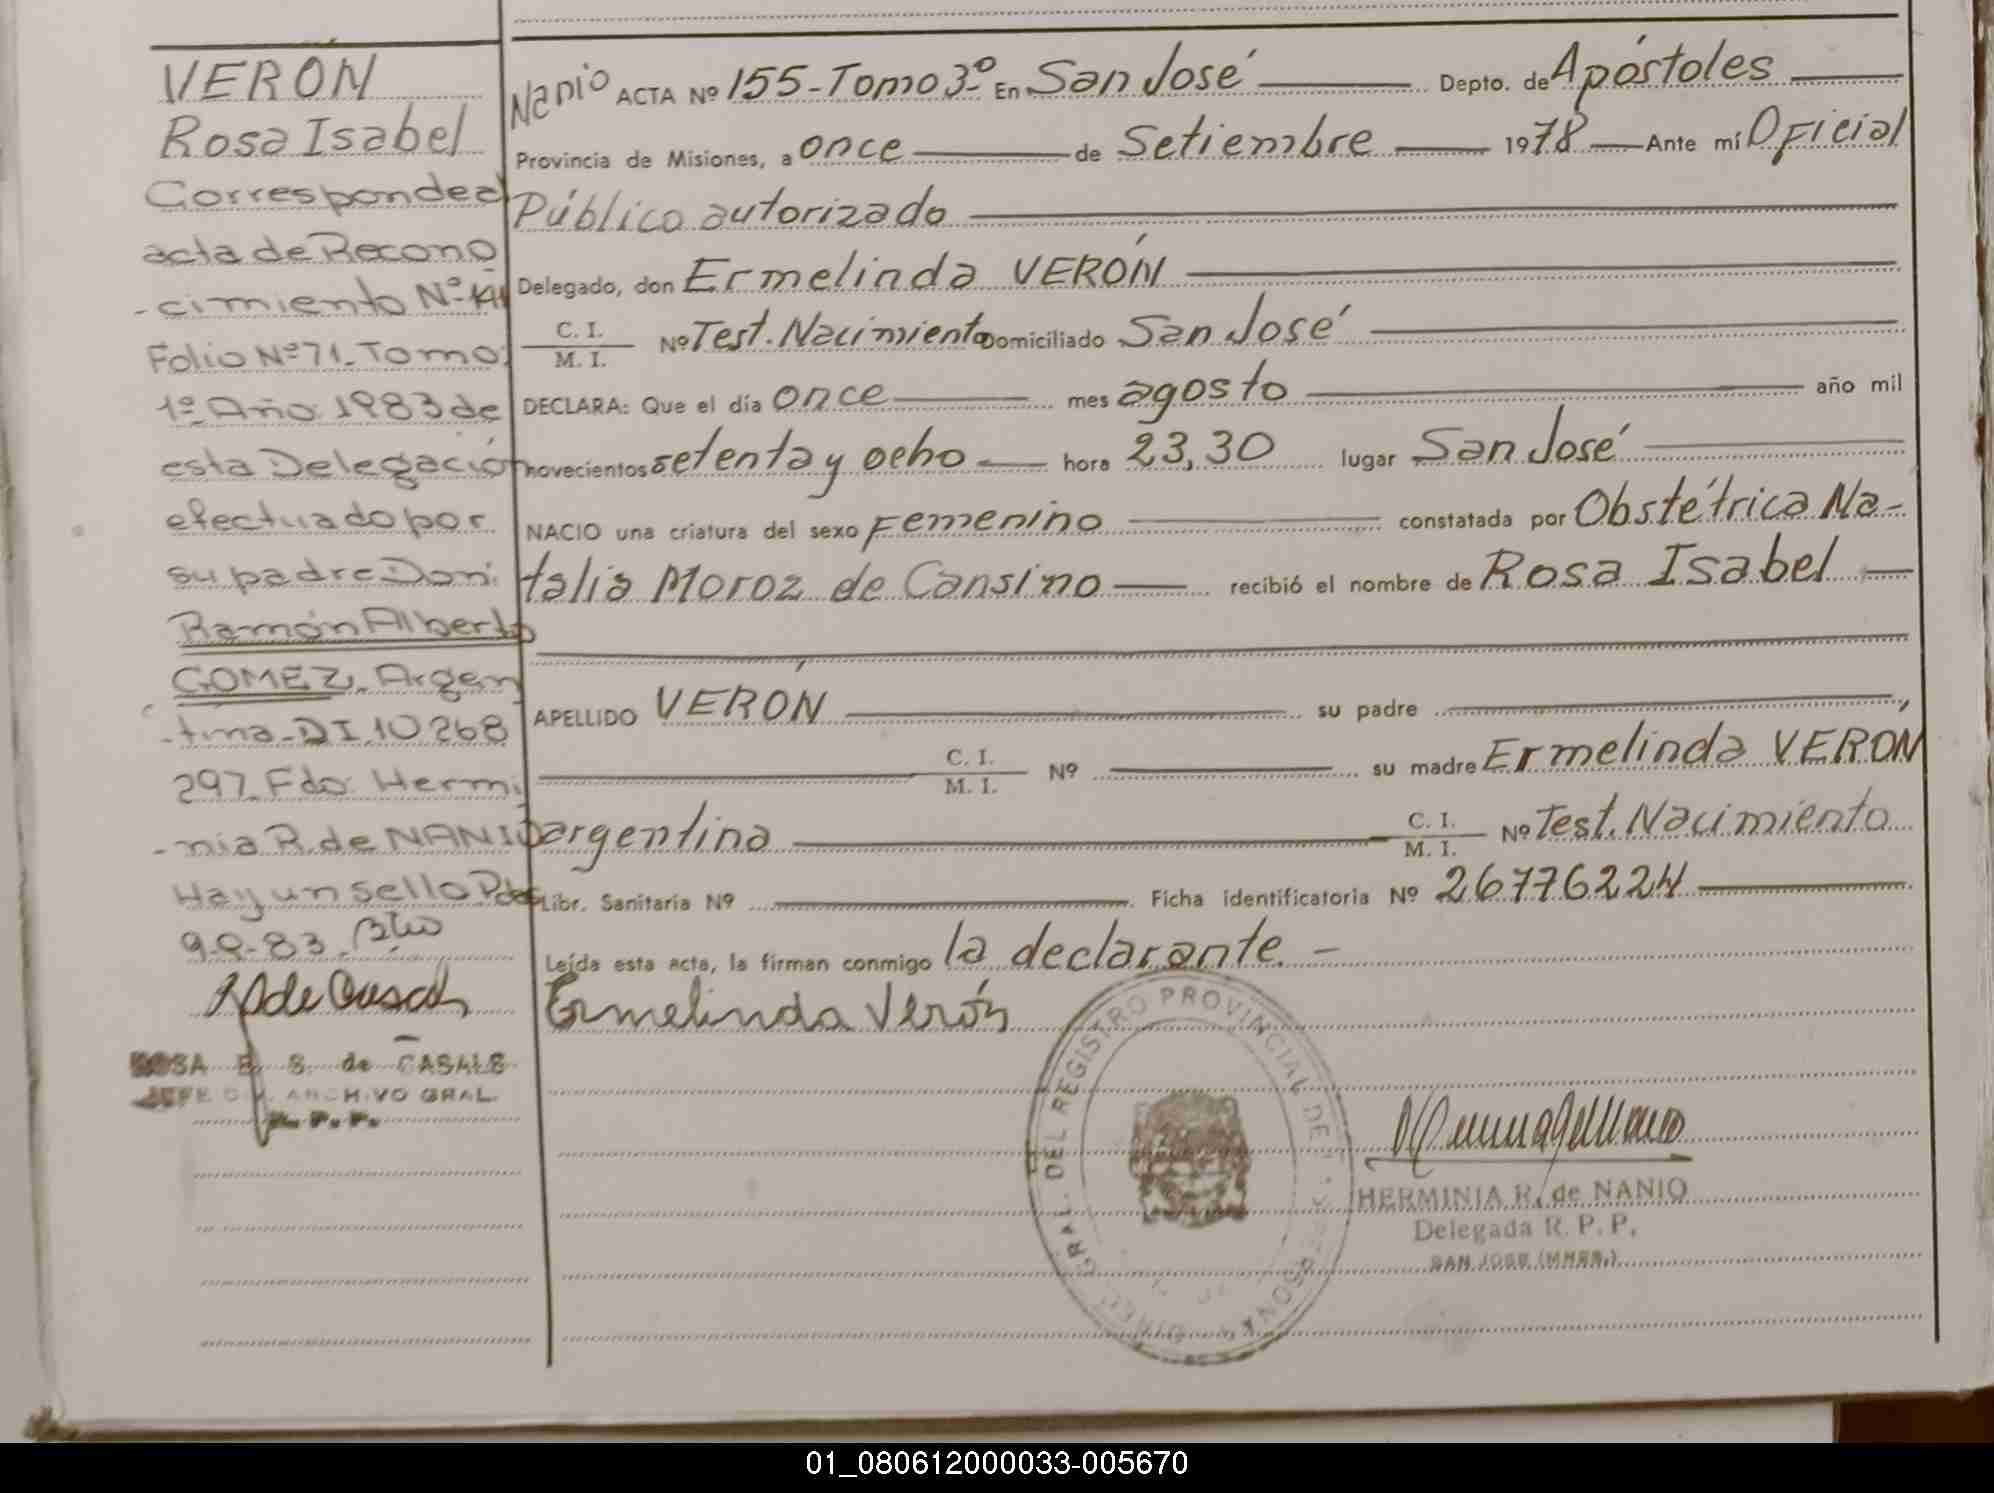 VERON
Rosa Isabel
Corresponde al
acta de Recono
-cimiento Nº
Folio Nº 71. Tomo
1º Año 1983 de
esta Delegación
efectuado por
su padre Don:
Ramón Alberto
GOMEZ. Argen
-tina. DI 10 268
297. Fdo. Hermi
-nia R. de NANIO
Hay un sello
83.
ROSA de CASALS
JEFE ARCHIVO GRAL.
R. P. P.
Nanio ACTA Nº 155-Tomo 3º En San José Depto. de Apóstoles
Provincia de Misiones, a once de Setiembre 1978 Ante mí Oficial
Público autorizado
Delegado, don Ermelinda VERÓN
C. I.
M. I. Nº Test. Nacimiento Domiciliado San José
DECLARA: Que el día once mes agosto año mil
novecientos setenta y ocho hora 23,30 lugar San José
NACIO una criatura del sexo Femenino constatada por Obstétrica Na-
talia Moroz de Cansino recibió el nombre de Rosa Isabel
APELLIDO VERÓN su padre
C. I.
M. I. Nº su madre Ermelinda VERÓN
argentina C. I.
M. I. Nº Test. Nacimiento
Libr. Sanitaria Nº Ficha identificatoria Nº 26776224
Leída esta acta, la firman conmigo la declarante. -
Ermelinda Verón
GRAL. DEL REGISTRO PROVINCIAL DE
HERMINIA R. de NANIO
Delegada R. P. P.
SAN JOSE (MNES.)
01_080612000033-005670